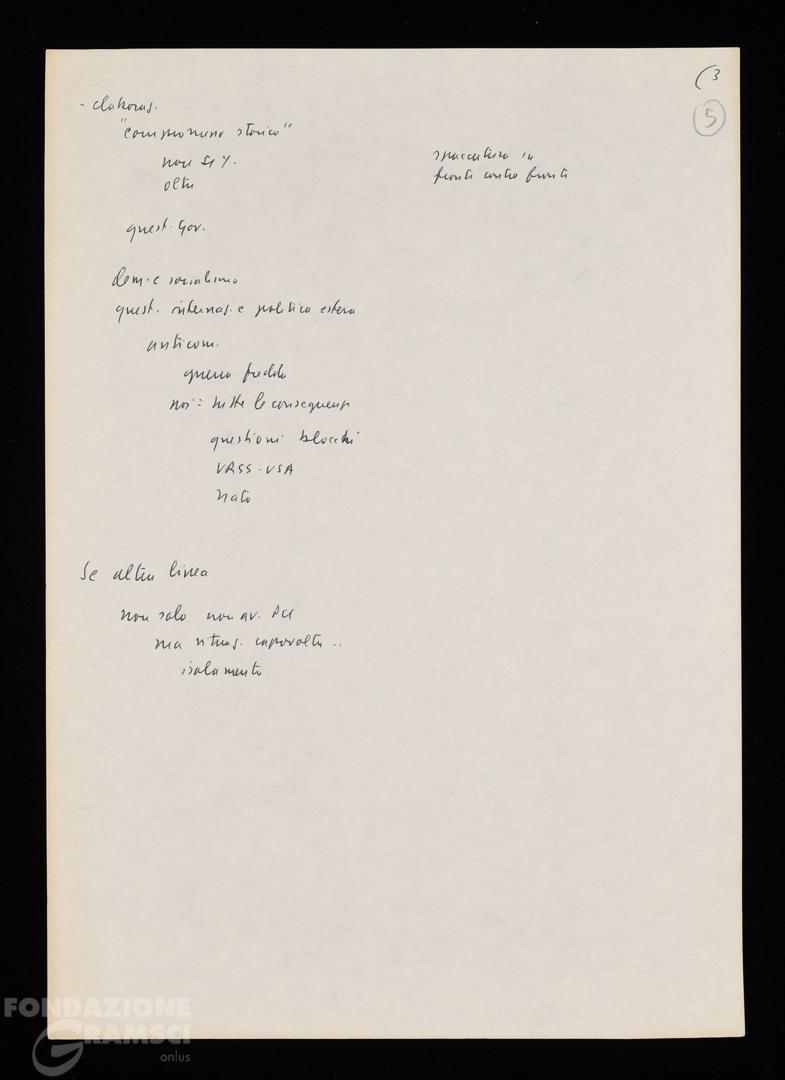 (3
5
- elaboraz.
"compromesso storico"
non 51%.
oltre
spaccatura in
fronte contro fronte
quest. gov.
dem. e socialismo
quest. internaz. e politica estera
anticom.
guerra fredda
noi = tutte le conseguenze
questioni blocchi
URSS - USA
nato
Se altra linea
non solo non av. PCI
ma situaz. capovolta ..
isolamento
FONDAZIONE
GRAMSCI
onlus